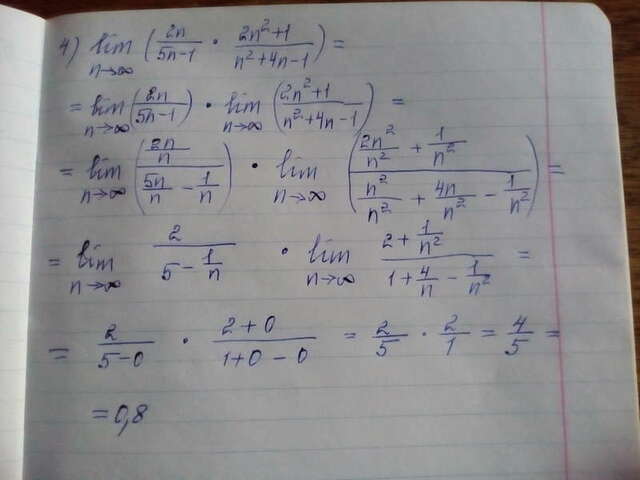 4) lim n→∞ (2n/(5n-1) · (2n²+1)/(n²+4n-1)) =
= lim n→∞ (2n/(5n-1)) · lim n→∞ ((2n²+1)/(n²+4n-1)) =
= lim n→∞ ((2n/n)/(5n/n - 1/n)) · lim n→∞ ((2n²/n² + 1/n²)/(n²/n² + 4n/n² - 1/n²)) =
= lim n→∞ 2/(5 - 1/n) · lim n→∞ (2 + 1/n²)/(1 + 4/n - 1/n²) =
= 2/(5-0) · (2+0)/(1+0-0) = 2/5 · 2/1 = 4/5 =
= 0,8